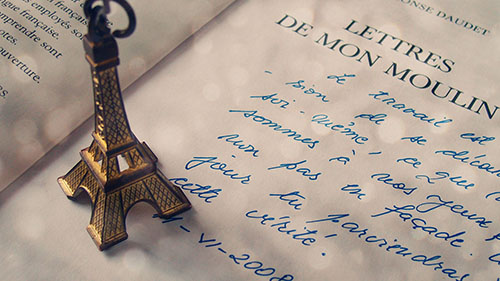 français
gue française.
omprendre sont
otes.
ouverture.
ONSE DAUDET
LETTRES
DE MON MOULIN
- Le travail est
sion de se décou
soi-même, ce que n
sommes à nos yeux
non pas en façade
jour tu parviendras
cette vérité!
-VI-2008